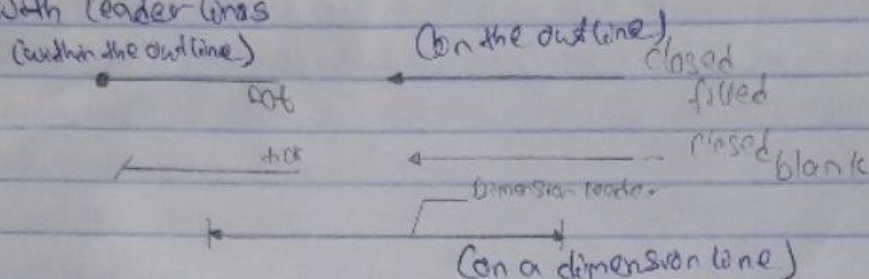 with leader lines
(within the outline) (on the outline)
Dot closed filled
tick closed blank
Dimension leader
(on a dimension line)